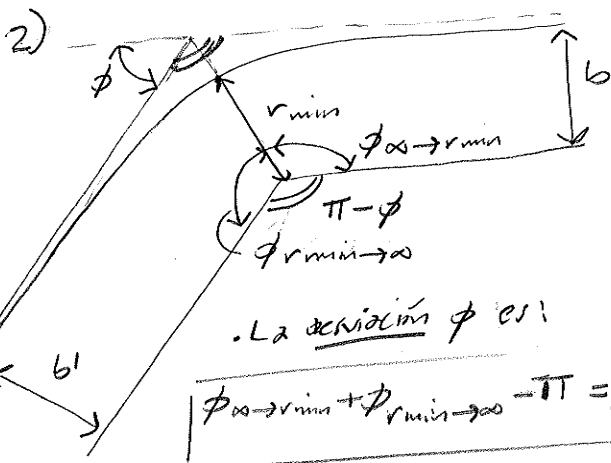 2)
ϕ
r min
b
ϕ∞→rmin
π-ϕ
ϕrmin→∞
b'
. La desviación ϕ es:
ϕ∞→rmin + ϕrmin→∞ - π =